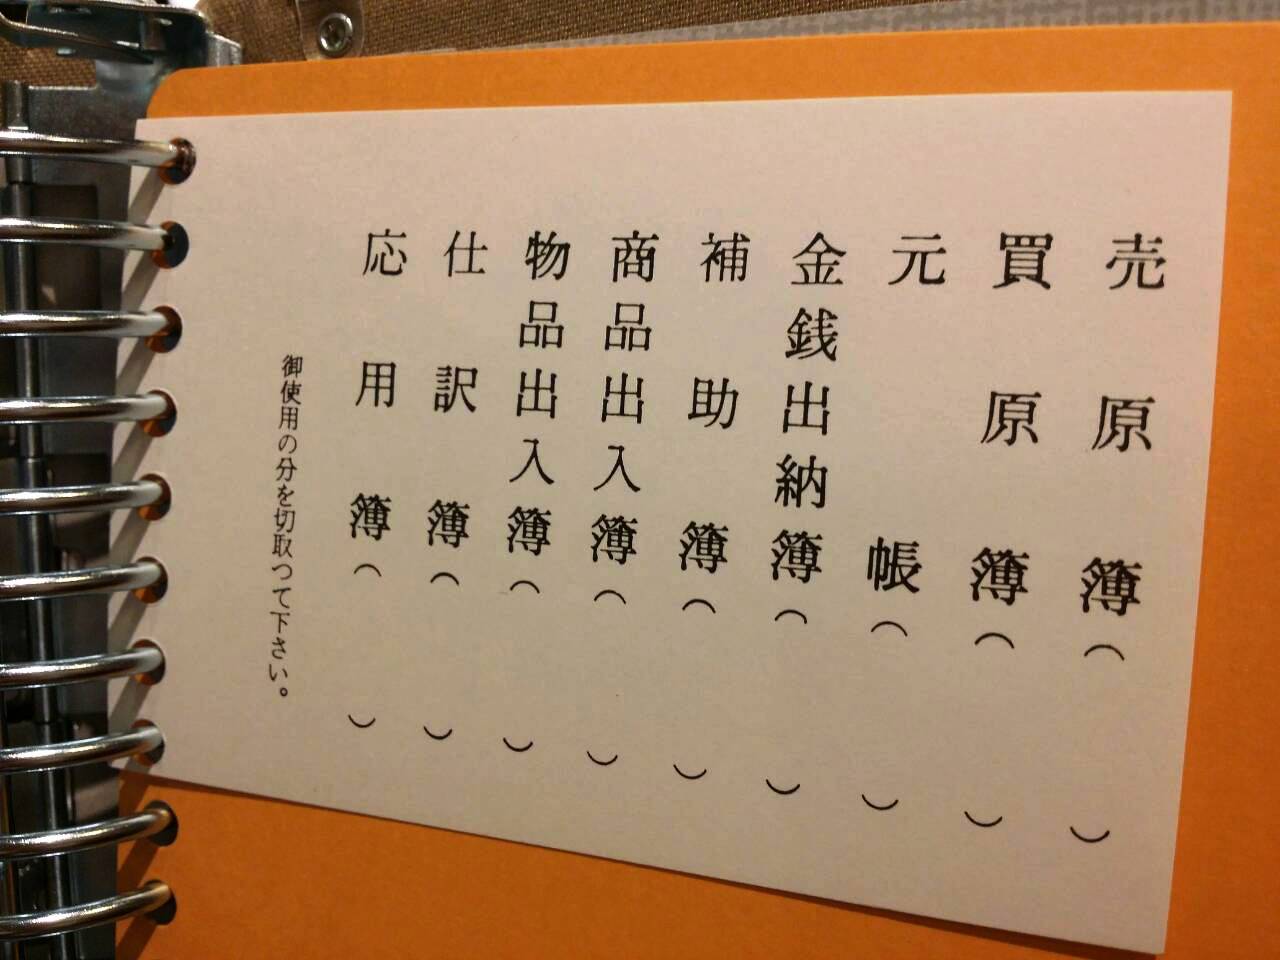 売原簿（　）
買原簿（　）
元帳（　）
金銭出納簿（　）
補助簿（　）
商品出入簿（　）
物品出入簿（　）
仕訳簿（　）
応用簿（　）
御使用の分を切取つて下さい。